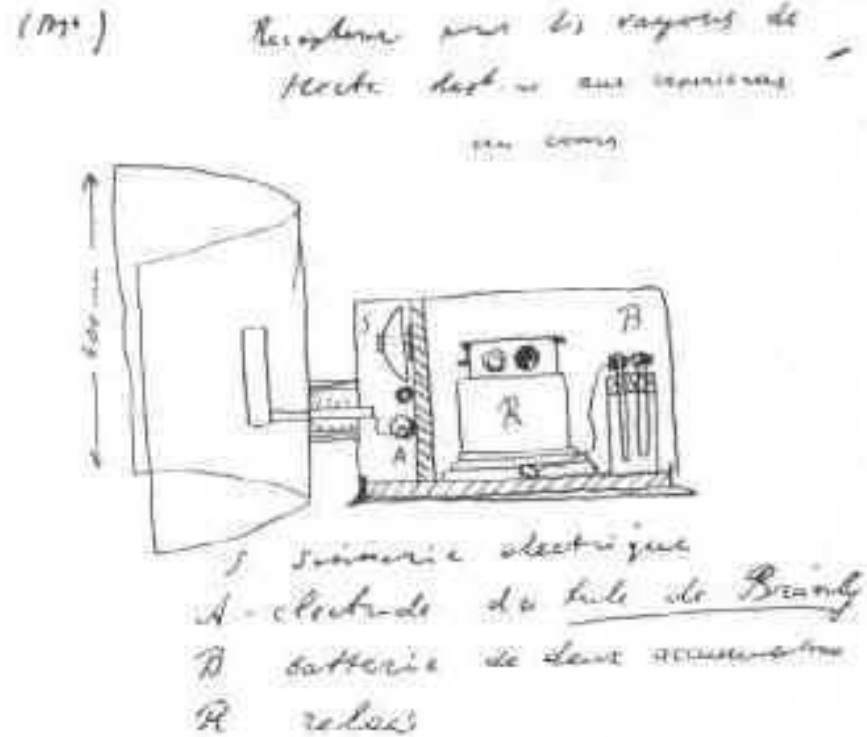 Recepteur pour les rayons de
Hertz aux experiences
en cours
S
B
R
A
S sonnerie electrique
A - electrode du tube de Branly
B batterie de deux accumulateurs
R relais